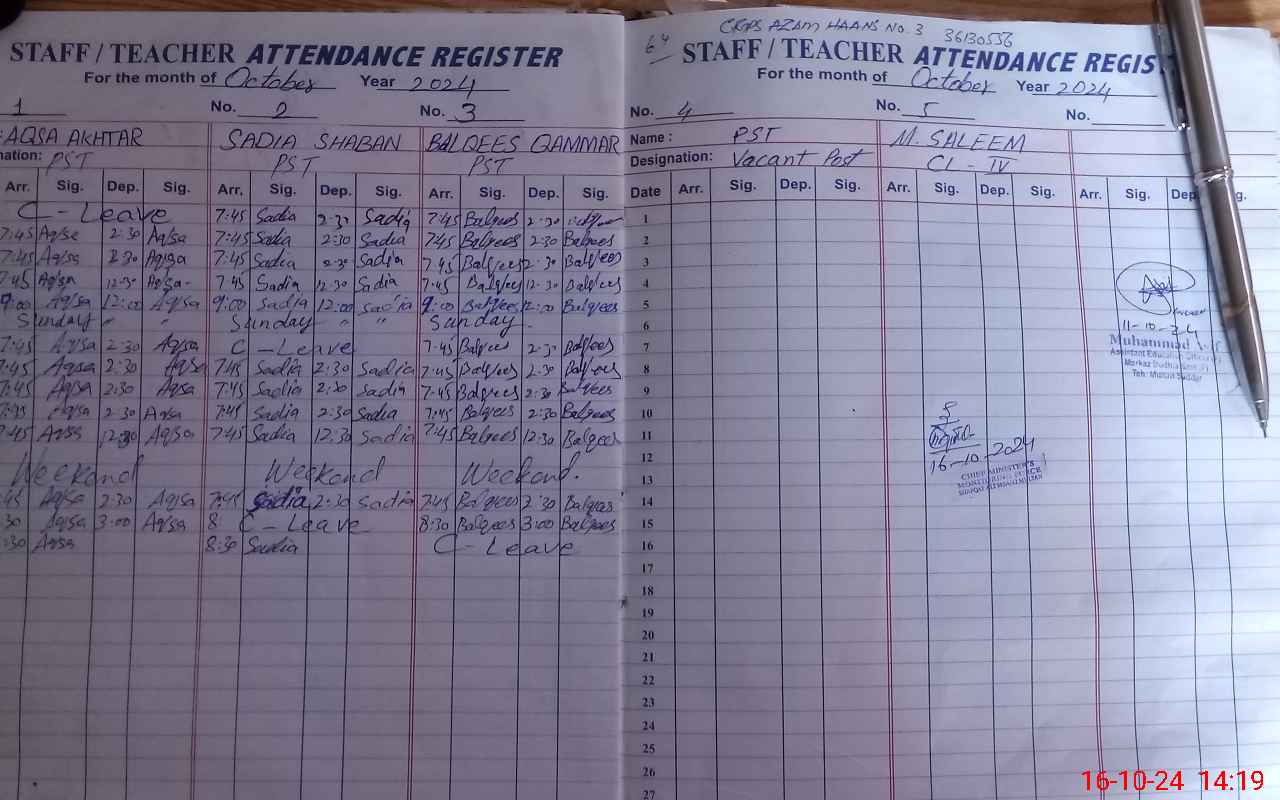 STAFF / TEACHER ATTENDANCE REGISTER
For the month of October Year 2024
1 No. 2 No. 3
AQSA AKHTAR SADIA SHABAN BALQEES QAMMAR
nation: PST PST PST
Arr. Sig. Dep. Sig. Arr. Sig. Dep. Sig. Arr. Sig. Dep. Sig.
C - Leave 7:45 Sadia 2:30 Sadia 7:45 Balqees 2:30
7:45 Aqsa 2:30 Aqsa 7:45 Sadia 2:30 Sadia 7:45 Balqees 2:30 Balqees
7:45 Aqsa 2:30 Aqsa 7:45 Sadia 2:30 Sadia 7:45 Balqees 2:30 Balqees
7:45 Aqsa 12:30 Aqsa 7:45 Sadia 12:30 Sadia 7:45 Balqees 12:30 Balqees
9:00 Aqsa 12:00 Aqsa 9:00 Sadia 12:00 Sadia 9:00 Balqees 12:00 Balqees
Sunday " " Sunday " " Sunday
7:45 Aqsa 2:30 Aqsa C - Leave 7:45 Balqees 2:30 Balqees
7:45 Aqsa 2:30 Aqsa 7:45 Sadia 2:30 Sadia 7:45 Balqees 2:30 Balqees
7:45 Aqsa 2:30 Aqsa 7:45 Sadia 2:30 Sadia 7:45 Balqees 2:30 Balqees
7:45 Aqsa 2:30 Aqsa 7:45 Sadia 2:30 Sadia 7:45 Balqees 2:30 Balqees
7:45 Aqsa 12:30 Aqsa 7:45 Sadia 12:30 Sadia 7:45 Balqees 12:30 Balqees
Weekend Weekend Weekend.
:45 Aqsa 2:30 Aqsa 7:45 Sadia 2:30 Sadia 7:45 Balqees 2:30 Balqees
:30 Aqsa 3:00 Aqsa 8 C - Leave 8:30 Balqees 3:00 Balqees
:30 Aqsa 8:30 Sadia C - Leave
AZAM HAANS NO. 3 36130556
64
STAFF / TEACHER ATTENDANCE REGIST
For the month of October Year 2024
No. 4 No. 5 No.
Name : PST M. SALEEM
Designation: Vacant Post CL - IV
Date Arr. Sig. Dep. Sig. Arr. Sig. Dep. Sig. Arr. Sig. Dep g.
1
2
3
4
5
6
7
8
9
10
11
12
13
14
15
16
17
18
19
20
21
22
23
24
25
26
27
11-10-24
Muhammad
Assistant Education Officer
Markaz
Teh: Multan Saddar
5
16-10-2024
CHIEF MINISTER'S
MONITORING FORCE
16-10-24 14:19